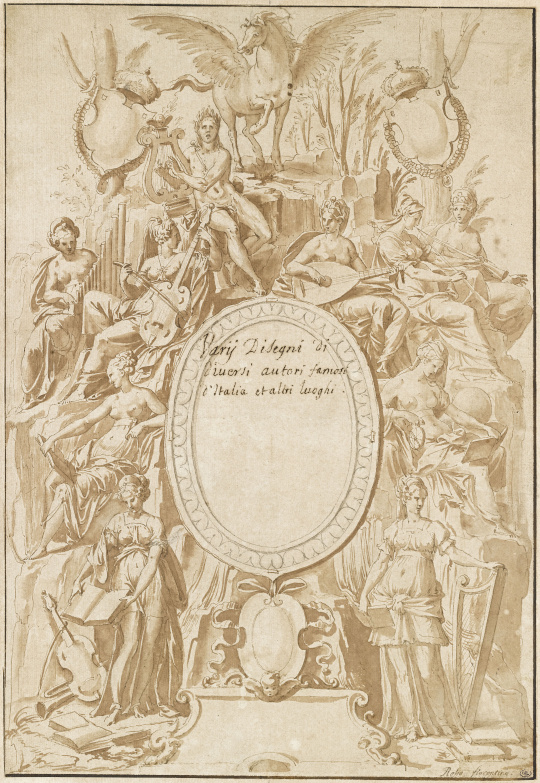 Varij Disegni di
diversi autori famosi
d'Italia et altri luoghi.